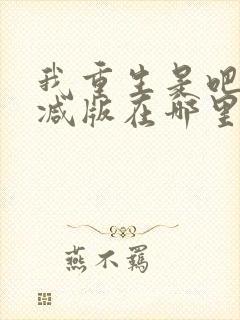 我重生是吧
减版在哪里
燕不羁